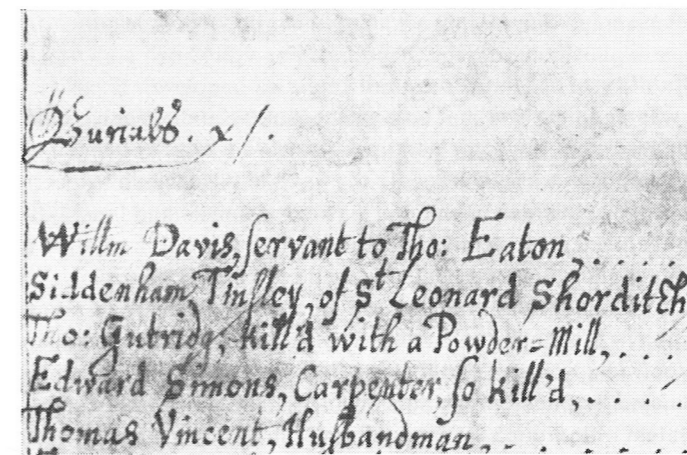 Burialls. x/.
Willm Davis, servant to Tho: Eaton, . . . . .
Siddenham Tinsley, of St Leonard Shorditch
Tho: Gutridg, kill'd with a Powder=Mill, . . .
Edward Simons, Carpenter, so kill'd, . . . .
Thomas Vincent, Husbandman, . . . . . . .